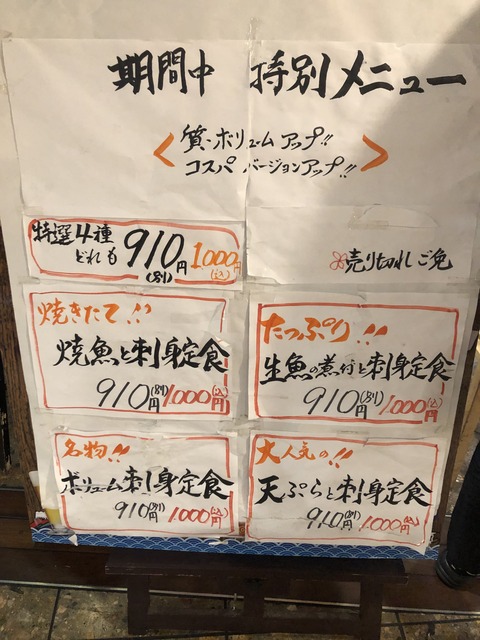 期間中 特別メニュー
質・ボリュームアップ!!
コスパ バージョンアップ!!
特選4種
どれも 910円(別) 1000円(込)
売り切れご免
焼きたて!!
焼魚と刺身定食
910円(別) 1000円(込)
たっぷり!!
生魚の煮付と刺身定食
910円(別) 1000円(込)
名物!!
ボリューム刺身定食
910円(別) 1000円(込)
大人気の!!
天ぷらと刺身定食
910円(別) 1000円(込)